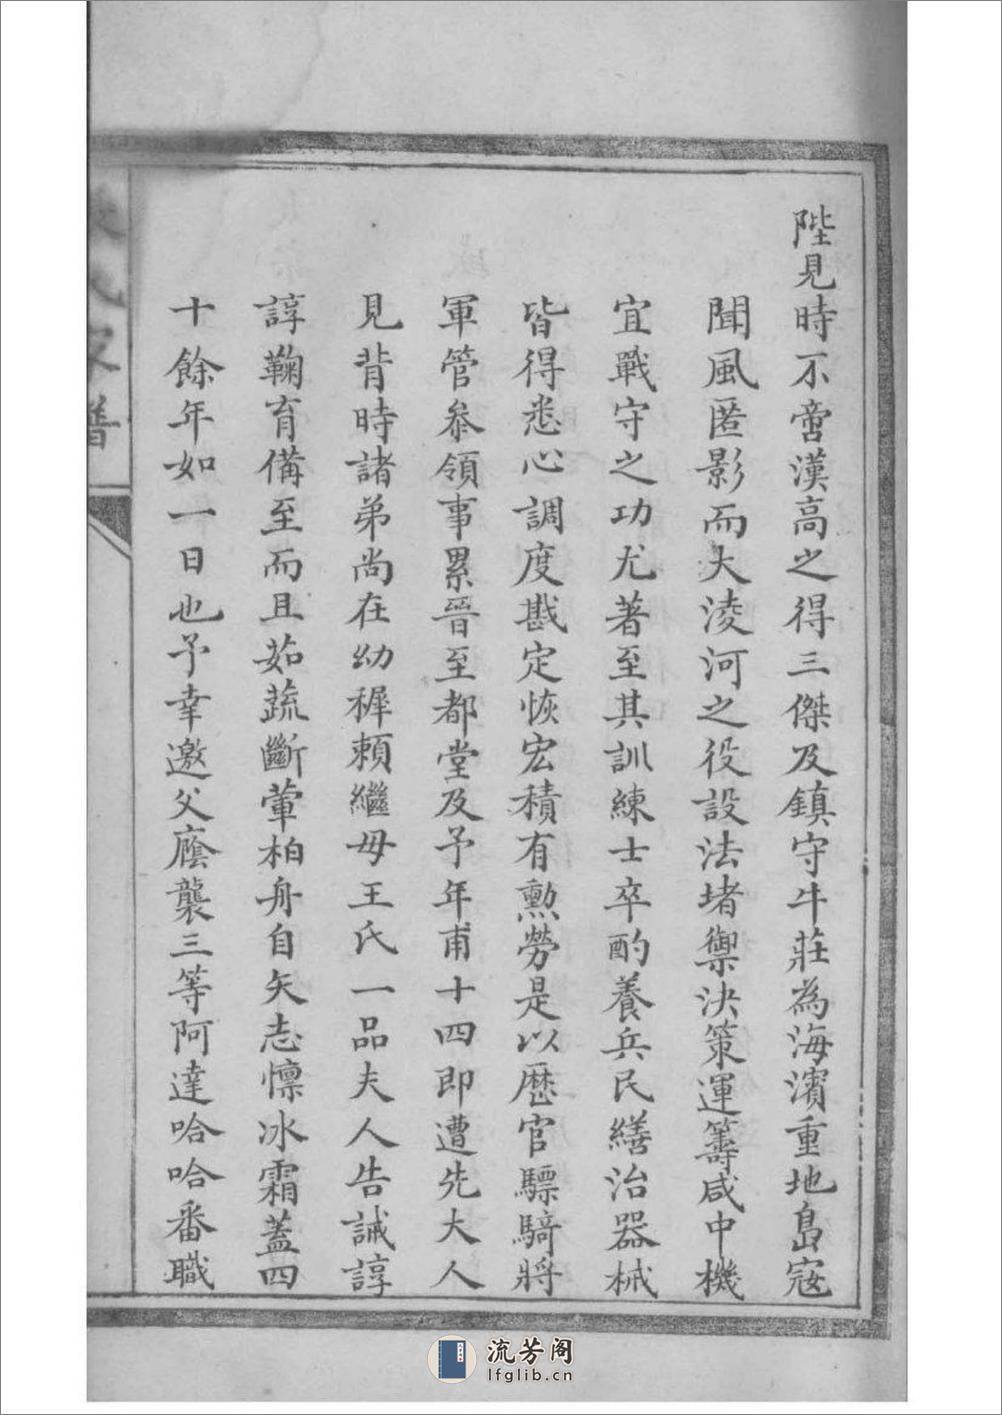 陛見時不啻漢高之得三傑及鎮守牛莊為海濱重地島寇
聞風匿影而大淩河之役設法堵禦決策運籌咸中機
宜戰守之功尤著至其訓練士卒酌養兵民繕治器械
皆得悉心調度戡定恢宏積有勲勞是以歷官驃騎將
軍管叅領事累晉至都堂及予年甫十四即遭先大人
見背時諸弟尚在幼穉頼繼母王氏一品夫人告誡諄
諄鞠育備至而且茹蔬斷葷柏舟自矢志懔冰霜蓋四
十餘年如一日也予幸邀父廕襲三等阿達哈哈番職
氏家譜
流芳阁
lfglib.cn